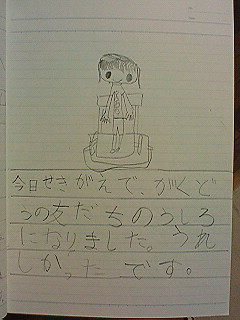 今日せきがえで、がくど
うの友だちのうしろ
になりました。うれ
しかったです。